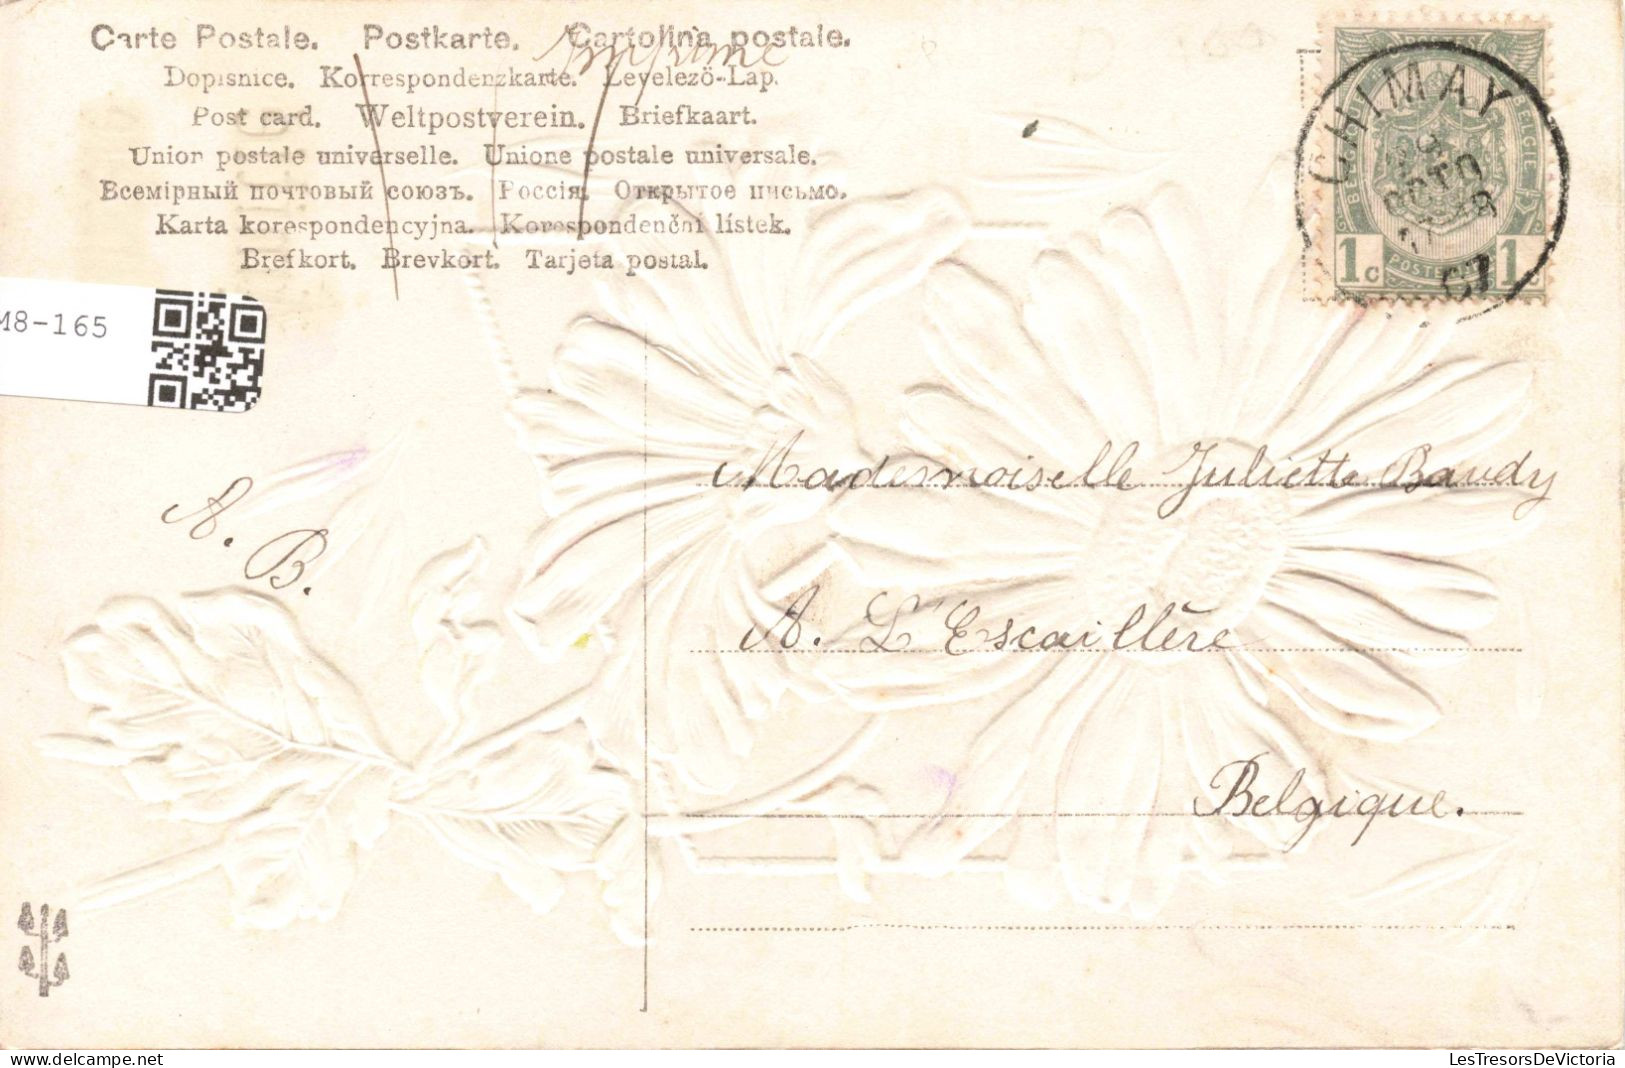 Carte Postale. Postkarte. Cartolina postale.
Imprimé
Dopisnice. Korrespondenzkarte. Levelező-Lap.
Post card. Weltpostverein. Briefkaart.
Union postale universelle. Unione postale universale.
Всемірный почтовый союзъ. Россія. Открытое письмо.
Karta korespondencyjna. Korespondenční lístek.
Brefkort. Brevkort. Tarjeta postal.
CHIMAY
OCTO
07
POSTES
BELGIE
1c POSTERIJEN 1c
M8-165
A. B.
Mademoiselle Juliette Baudy
A. L'Escaillère
Belgique.
LesTresorsDeVictoria